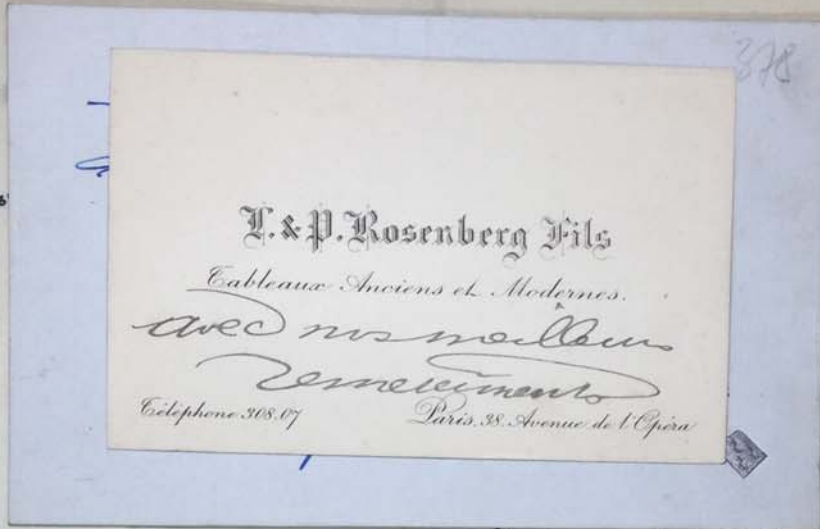 378
L. & P. Rosenberg Fils
Tableaux Anciens et Modernes.
avec nos meilleurs
remerciements
Téléphone 308.07
Paris, 38. Avenue de l'Opéra